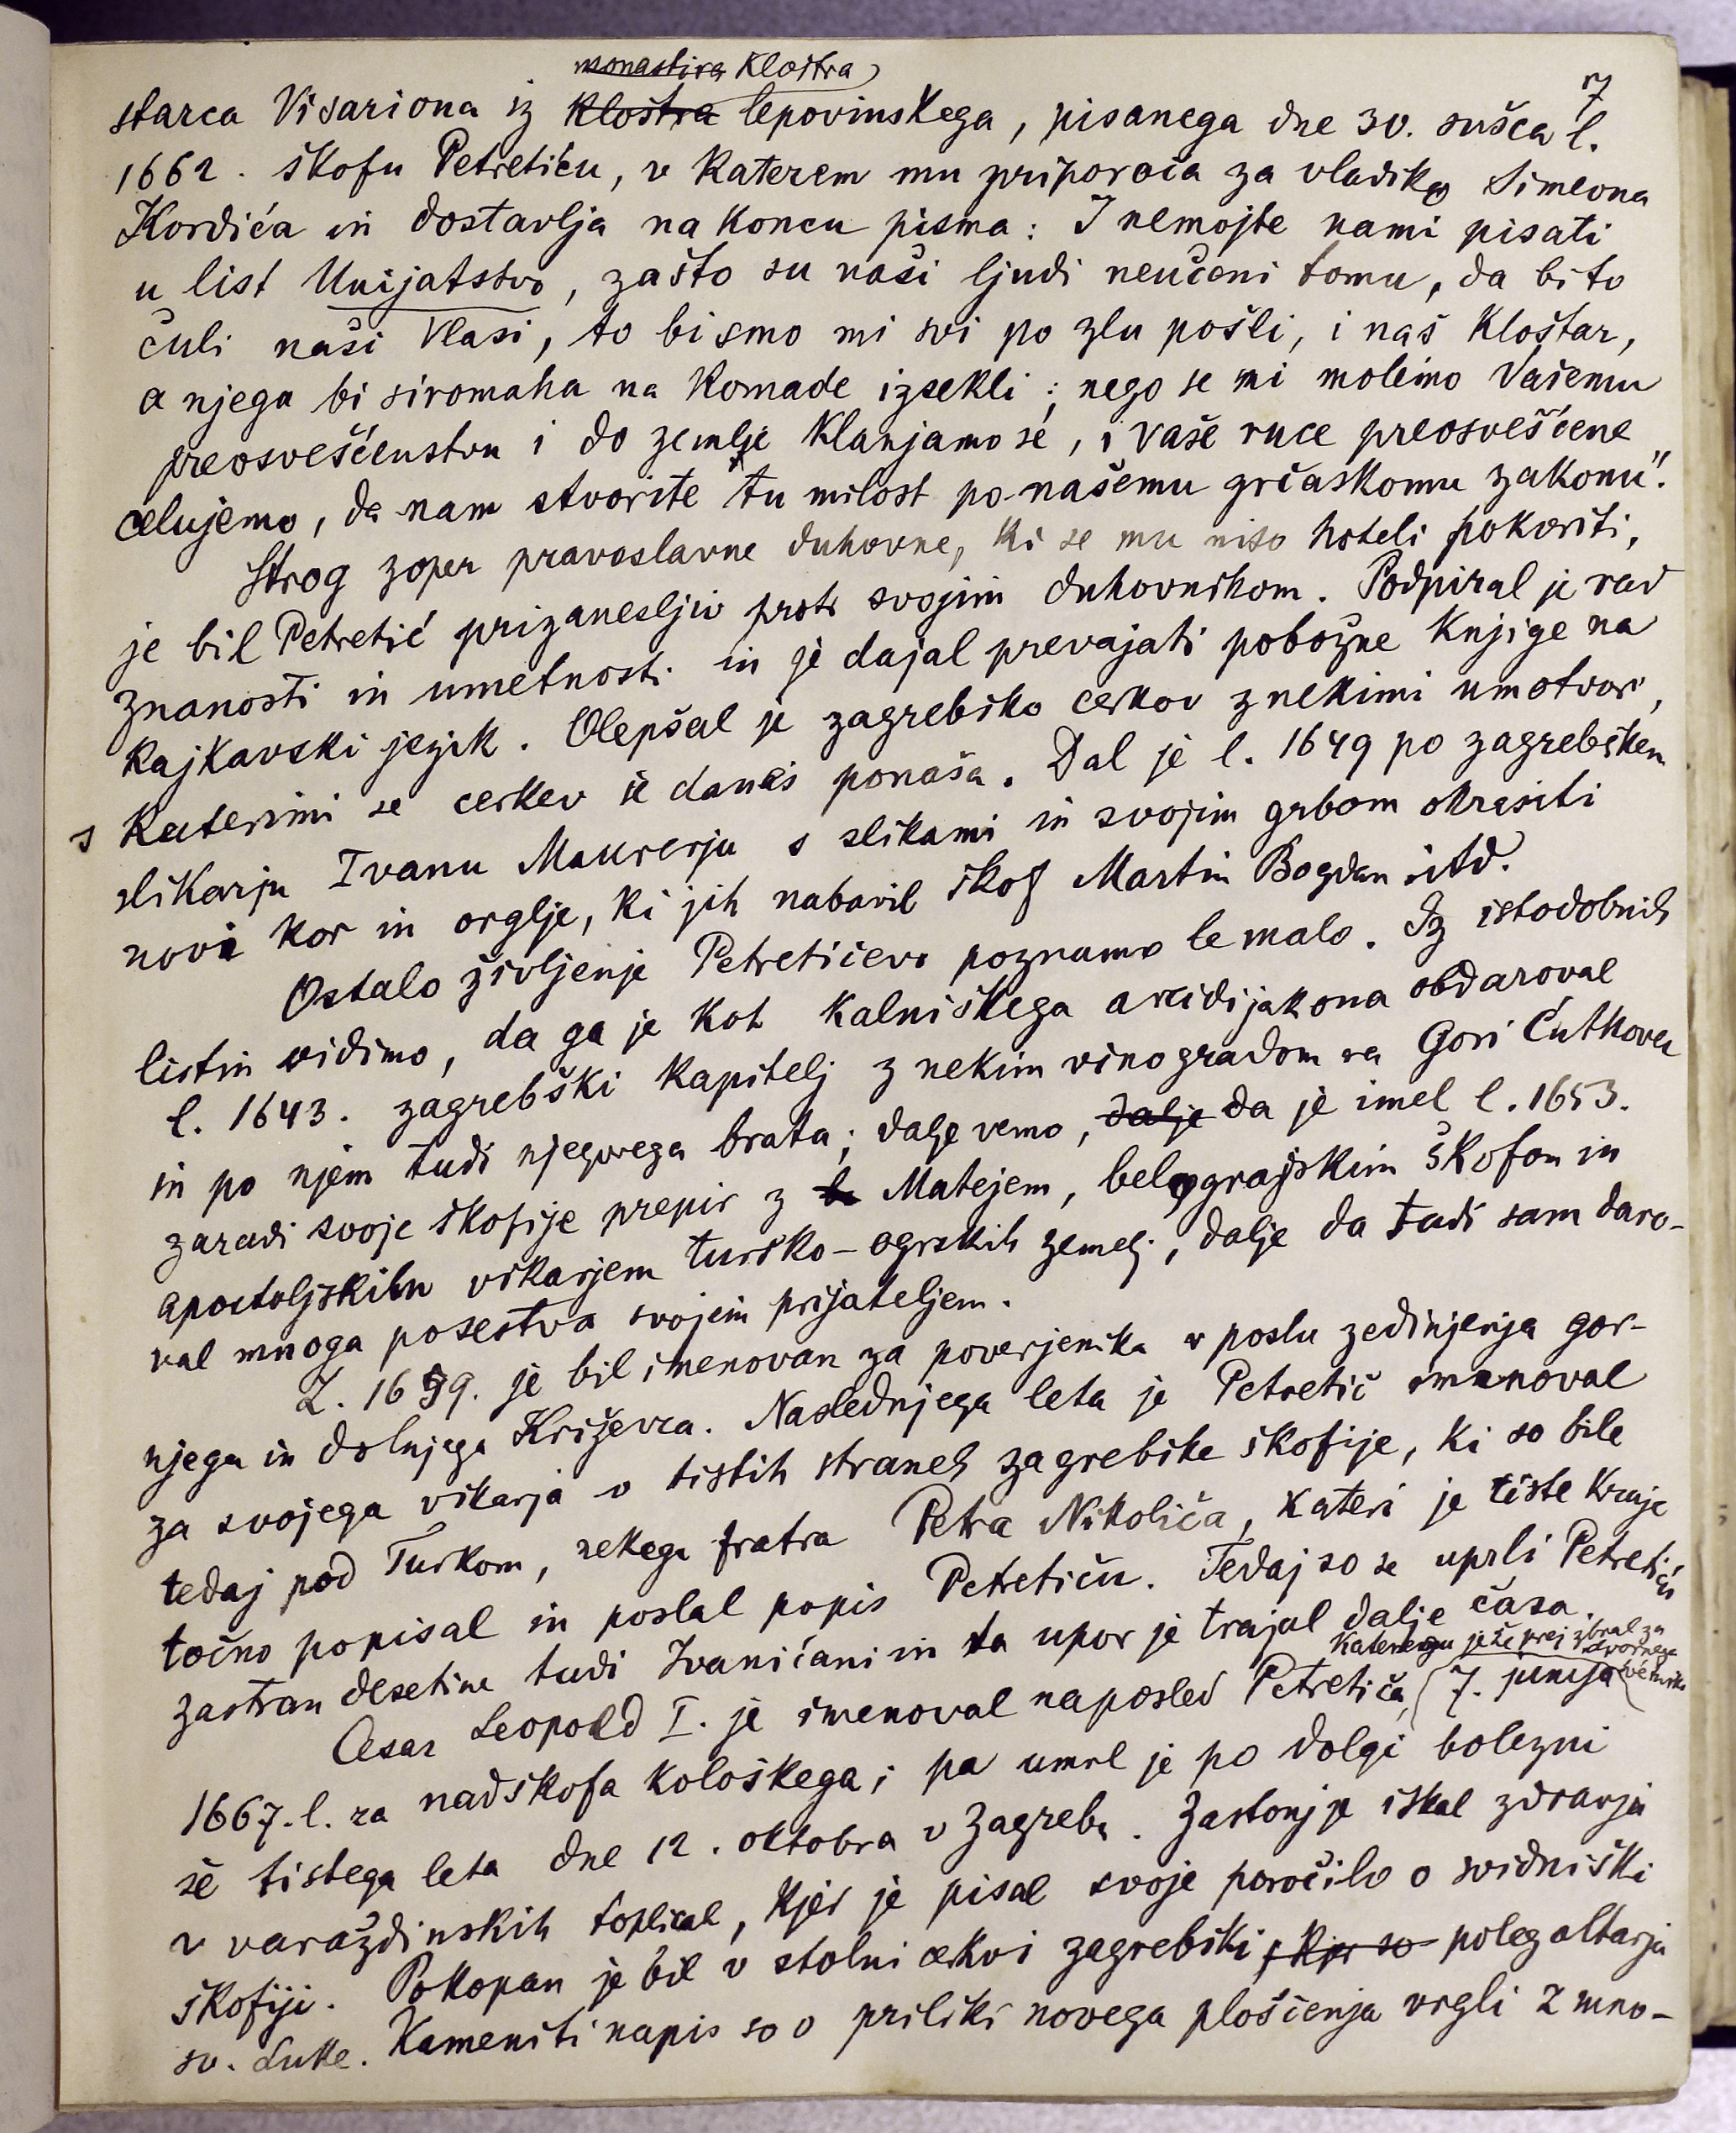 7
monastira Kloštra
starca Visariona iz kloštra lepovinskega, pisanega dne 30. sušca l.
1662. škofu Petretiću, v katerem mu priporoča za vladiko Simeona
Kordića in dostavlja na koncu pisma: I nemojte nami pisati
u list Unijatstvo, zašto su naši ljudi neučeni tomu, da bi to
čuli naši Vlasi, to bi smo mi svi po zlu pošli, i naš Kloštar,
a njega bi siromaha na komade izsekli; nego se mi molimo Vašemu
preosveščenstvu i do zemlje klanjamo se, i vaše ruce preosveščene
celujemo, da nam stvorite tu milost po našemu grčaskomu zakonu".
Strog zoper pravoslavne duhovne, ki se mu niso hoteli pokoriti,
je bil Petretić prizanesljiv proti svojim duhovnikom. Podpiral je rad
znanosti in umetnosti in je dajal prevajati pobožne knjige na
kajkavski jezik. Olepšal je zagrebško cerkov z nekimi umotvori,
s katerimi se cerkev še danes ponaša. Dal je l. 1649 po zagrebškem
slikarju Ivanu Maurerju s slikami in svojim grbom okrasiti
novi kor in orglje, ki jih nabavil škof Martin Bogdan itd.
Ostalo življenje Petretićevo poznamo le malo. Iz istodobnih
listin vidimo, da ga je kot kalniškega arcidijakona obdaroval
l. 1643. zagrebški kapitelj z nekim vinogradom na Gori Ćutkovcu
in po njem tudi njegovega brata; dalje vemo, dalje da je imel l. 1653.
zaradi svoje škofije prepir z b Matejem, belograjskim škofom in
apostoljskim vikarjem turško-ogrskih zemelj, dalje da tudi sam daro-
val mnoga posestva svojim prijateljem.
L. 1659. je bil imenovan za poverjenika v poslu zedinjenja gor-
njega in dolnjega Križevca. Naslednjega leta je Petretić imenoval
za svojega vikarja v tistih straneh zagrebške škofije, ki so bile
tedaj pod Turkom, nekega fratra Petra Nikolića, kateri je tiste kraje
točno popisal in poslal popis Petretiću. Tedaj so se uprli Petretiću
zastran desetine tudi Ivanićani in ta upor je trajal dalje časa.
katerega je že prej izbral za dvornega svétnika
Cesar Leopold I. je imenoval naposled Petretića, 7. junija
1667. l. za nadškofa kološkega; pa umrl je po dolgi bolezni
še tistega leta dne 12. oktobra v Zagrebu. Zastonj je iskal zdravja
v varaždinskih toplicah, kjer je pisal svoje poročilo o svidniški
škofiji. Pokopan je bil v stolni cerkvi zagrebški, kjer so poleg altarja
sv. Luke. Kameniti napis so o priliki novega ploščenja vrgli z mno-